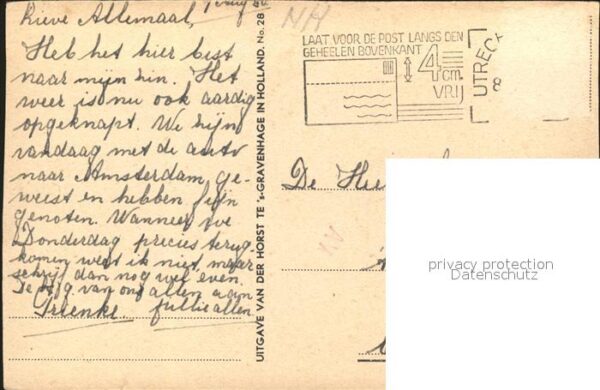 Lieve Allemaal,
Heb het hier best
naar mijn zin. Het
weer is nu ook aardig
opgeknapt. We zijn
vandaag met de auto
naar Amsterdam ge-
weest en hebben fijn
genoten. Wanneer we
Donderdag precies terug
komen weet ik niet maar
schrijf dan nog wel even.
van ons allen aan
jullie allen
UITGAVE VAN DER HORST TE 's-GRAVENHAGE IN HOLLAND. No. 28
NH
LAAT VOOR DE POST LANGS DEN
GEHEELEN BOVENKANT
4 cm.
VRIJ
UTRECH
8
De
privacy protection
Datenschutz